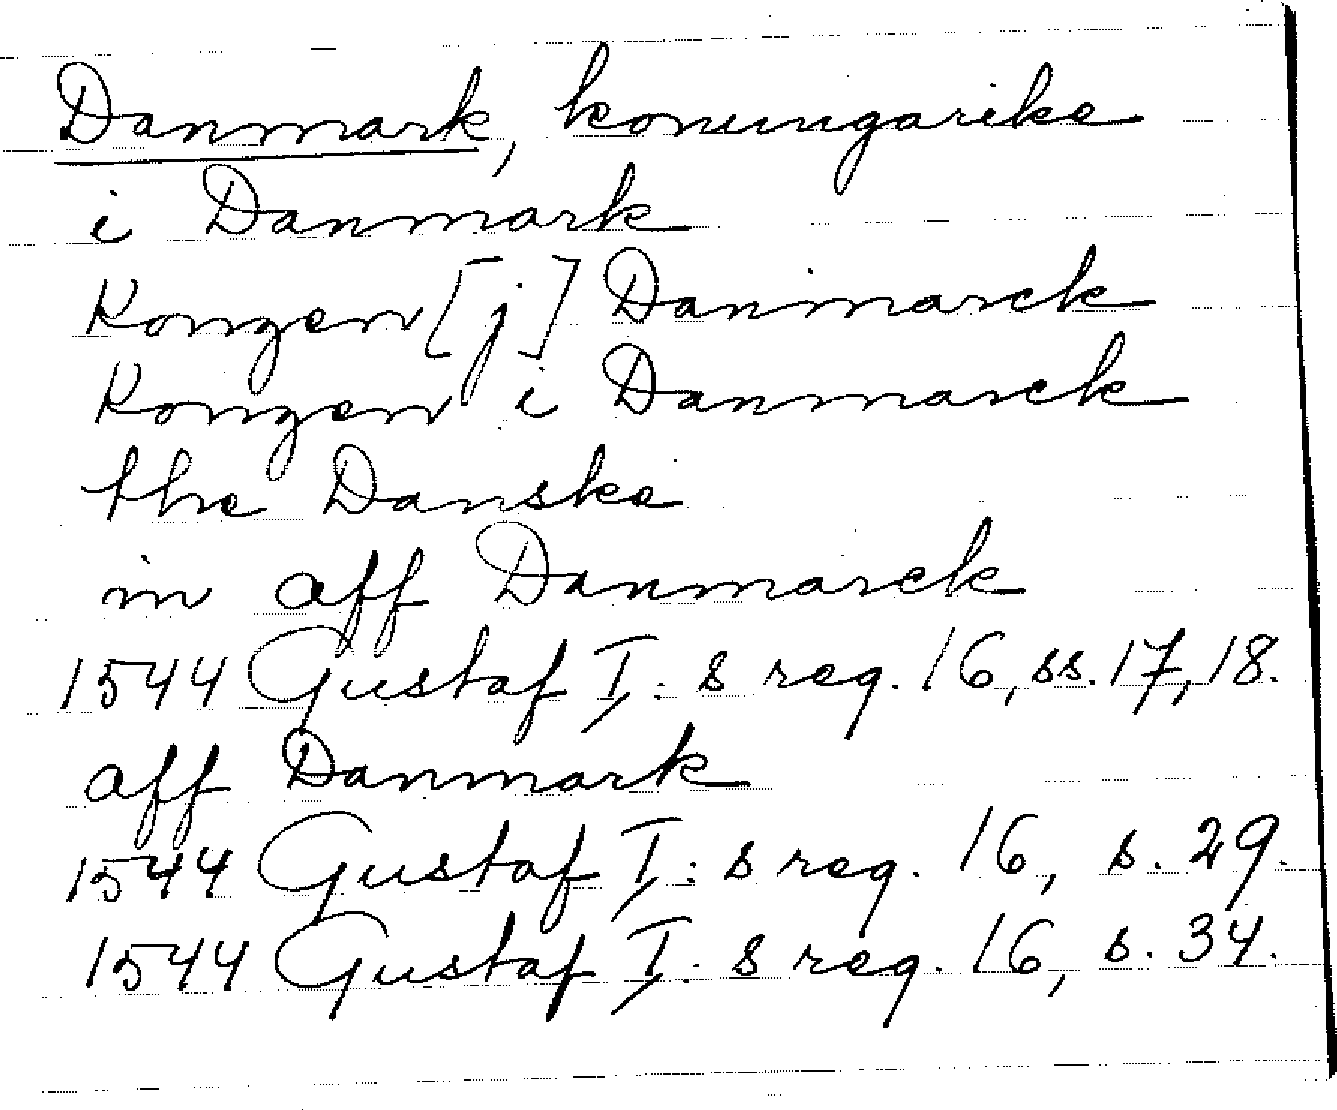 Danmark, konungarike
i Danmark
Kongen [j] Danmarck
Kongen i Danmarck
the Danske
in aff Danmarck
1544 Gustaf I:s reg. 16, ss. 17, 18.
aff Danmark
1544 Gustaf I:s reg. 16, s. 29.
1544 Gustaf I:s reg. 16, s. 34.